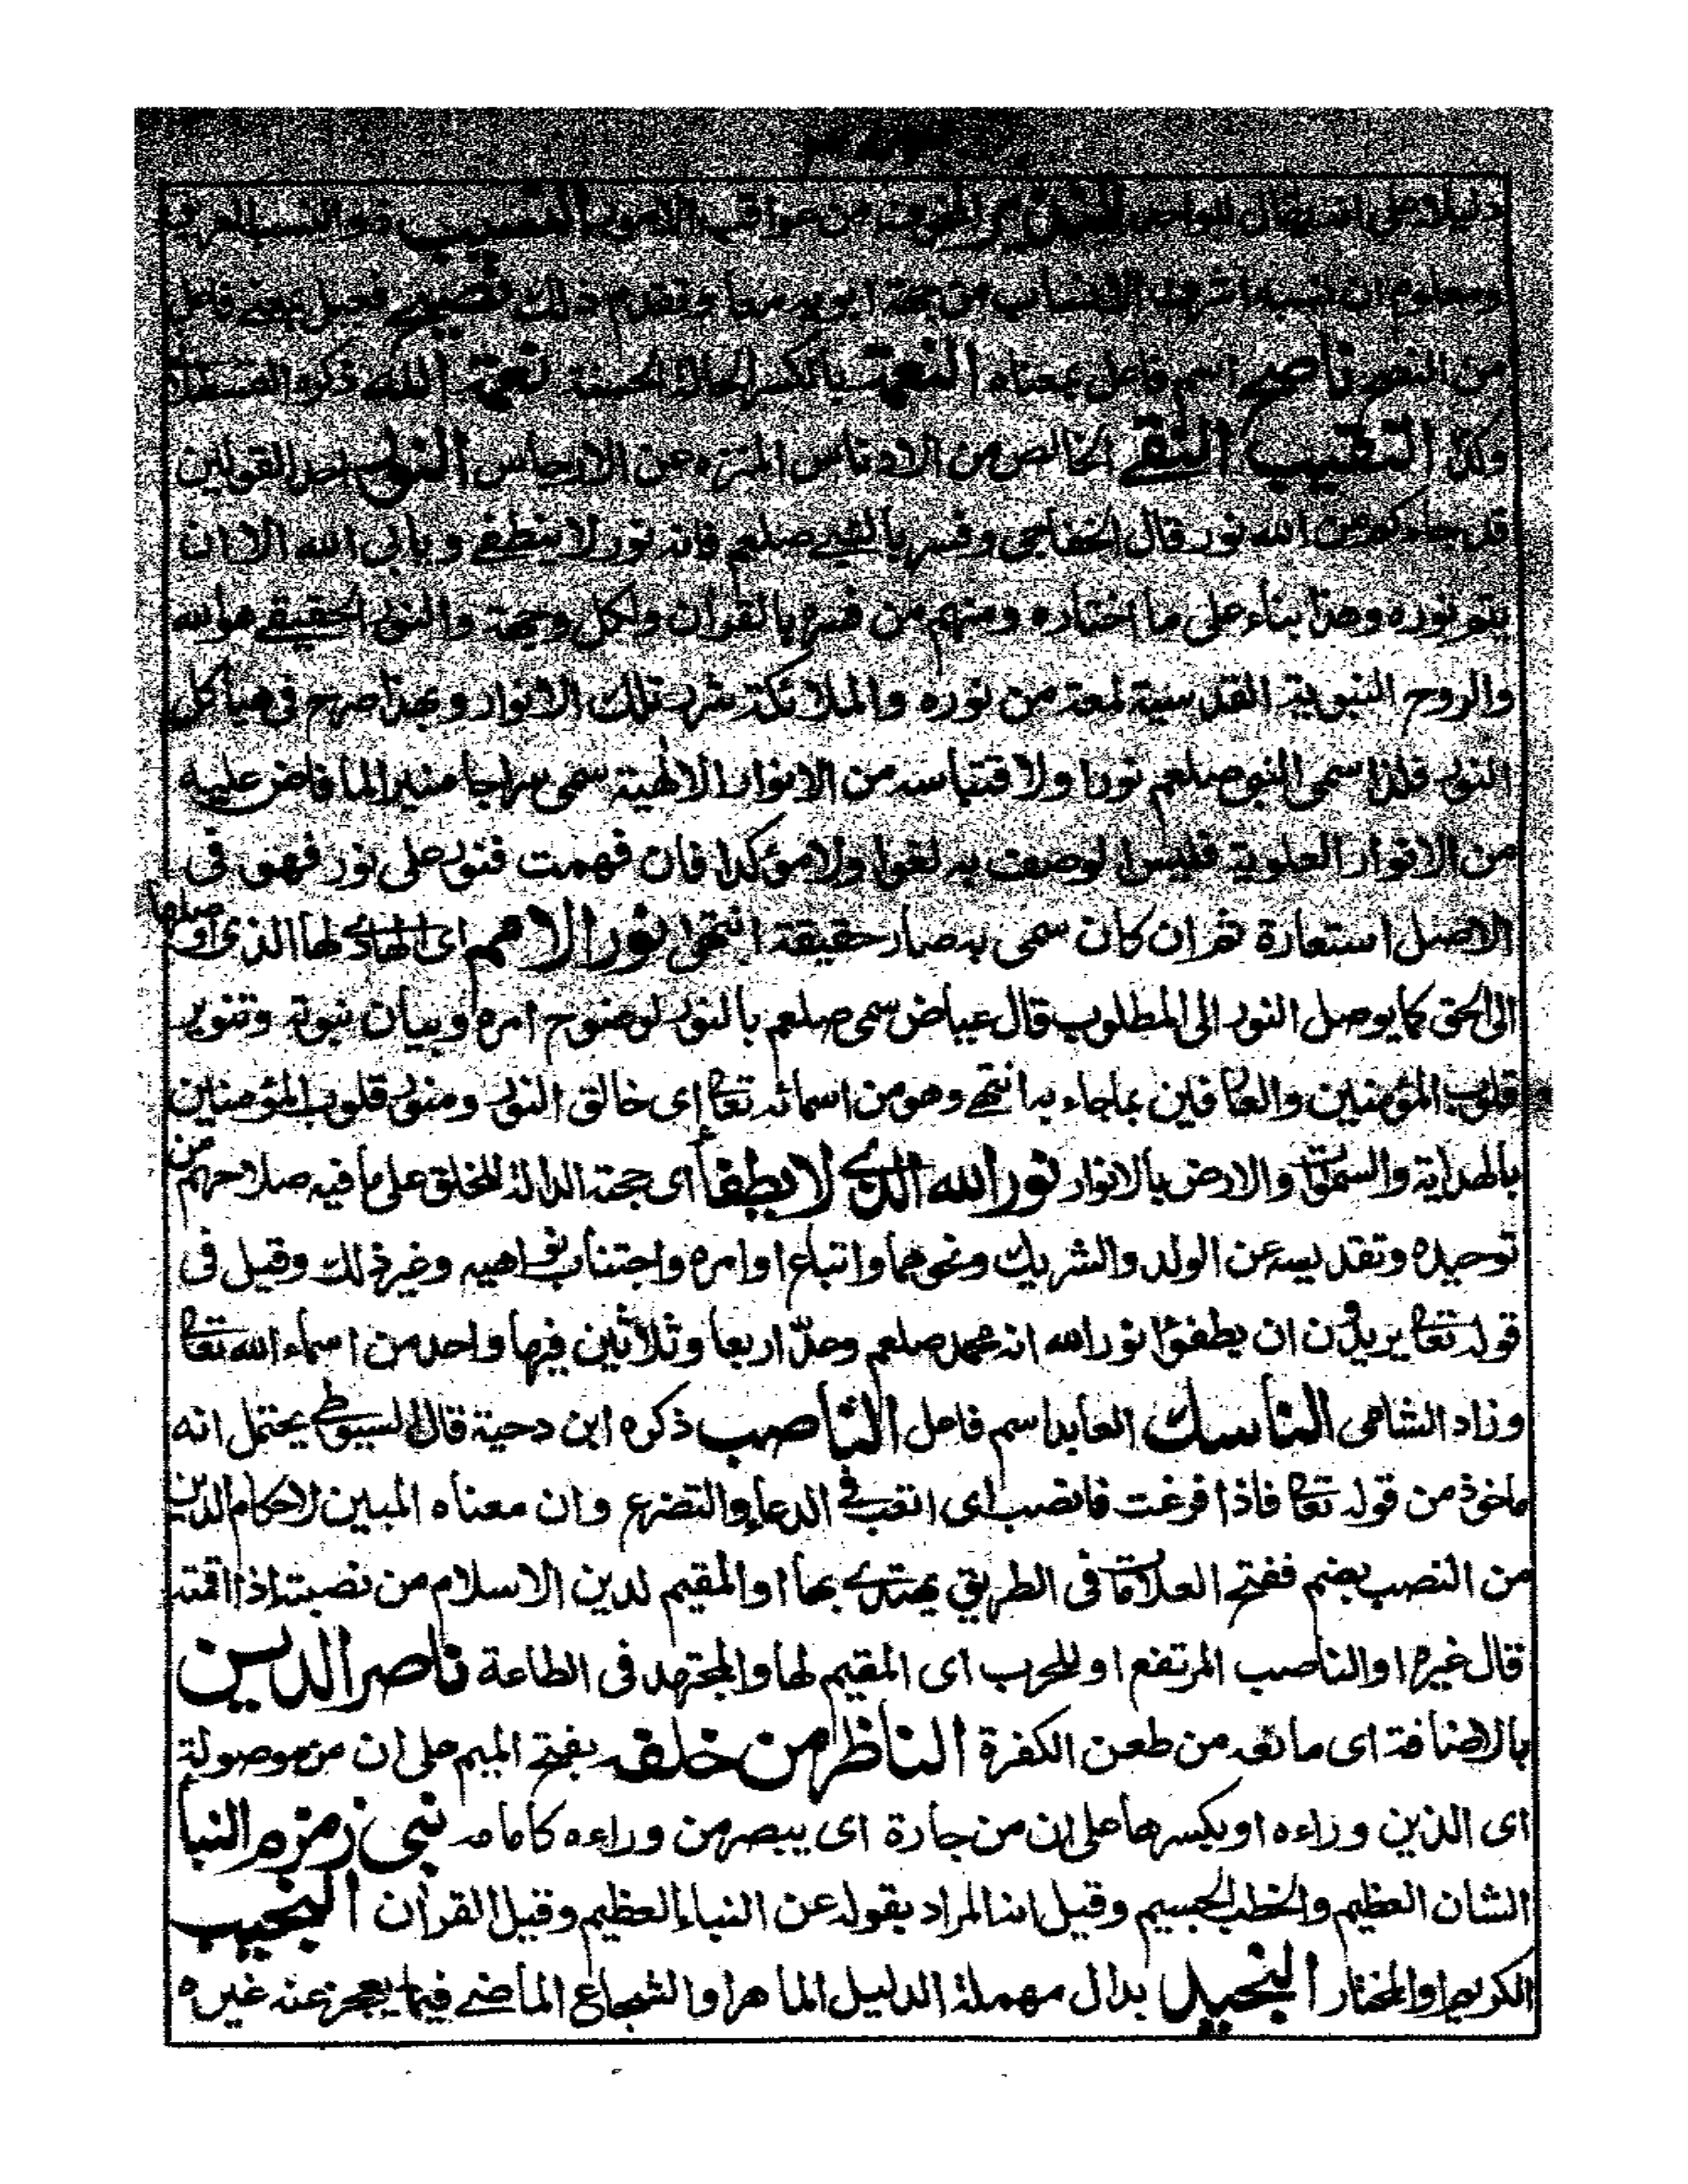 دليلا على انه يقال للواحد النذير المخوف من عواقب الامور النسيب ذو النسب العريق
ومعلوم ان نسبه اشرف الانساب من جهة ابويه معا وتقدم ذلك نصيح فعيل بمعنى فاعل
من النصح ناصح اسم فاعل بمعناه النعمة بالكسر الحالة الحسنة نعمة الله ذكره
وكذا النقيب النقى الخالص من الادناس المنزه عن الارجاس النور احد القولين
قد جاءكم من الله نور قال الخفاجى وفسر بالنبى صلعم فانه نور لا ينطفى ويابى الله الا ان
يتم نوره وهذا بناء على ما اختاره ومنهم من فسره بالقران ولكل وجهة والنور الحقيقى هو الله
والروح النبوية القدسية لمعة من نوره والملائكة شرر تلك الانوار وبهذا صرح فى هياكل
النور فلذا سمى النبى صلعم نورا ولاقتباسه من الانوار الالهية سمى سراجا منيرا لما فاض عليه
من الانوار العلوية فليس الوصف به لغوا ولا مؤكدا فان فهمت فنور على نور فهو فى
الاصل استعارة ثم ان كان سمى به صار حقيقة انتهى نور الامم اى الهادى لها الذى اوصلها
الى الحق كما يوصل النور الى المطلوب قال عياض سمى صلعم بالنور لوضوح امره وبيان نبوته وتنوير
قلوب المؤمنين والعارفين بما جاء به انتهى وهو من اسمائه تعالى اى خالق النور ومنور قلوب المؤمنين
بالهداية والسموات والارض بالانوار نور الله الذى لا يطفأ اى حجته الدالة للخلق على ما فيه صلاحهم من
توحيده وتقديسه عن الولد والشريك ونحوهما واتباع اوامره واجتناب نواهيه وغير ذلك وقيل فى
قوله تعالى يريدون ان يطفئوا نور الله انه محمد صلعم وعد اربعا وثلاثين فيها واحد من اسماء الله تعالى
وزاد الشامى الناسك العابد اسم فاعل الناصب ذكره ابن دحية قال السيوطى يحتمل انه
ماخوذ من قوله تعالى فاذا فرغت فانصب اى اتعب فى الدعاء والتضرع وان معناه المبين لاحكام الدين
من النصب بضم ففتح العلامات فى الطريق يهتدى بها او المقيم لدين الاسلام من نصبته اذا اقمته
قال غيره او الناصب المرتفع او للحرب اى المقيم لها والمجتهد فى الطاعة ناصر الدين
بالاضافة اى مانعه من طعن الكفرة الناظر من خلفه بفتح الميم على ان من موصولة
اى الذين وراءه او بكسرها على ان من جارة اى يبصر من وراءه كامامه نبى زمزم النبأ
الشان العظيم والخطب الجسيم وقيل انه المراد بقوله عن النباء العظيم وقيل القران النجيب
الكريم او المختار النجيد بدال مهملة الدليل الماهر او الشجاع الماضى فيما يعجز عنه غيره